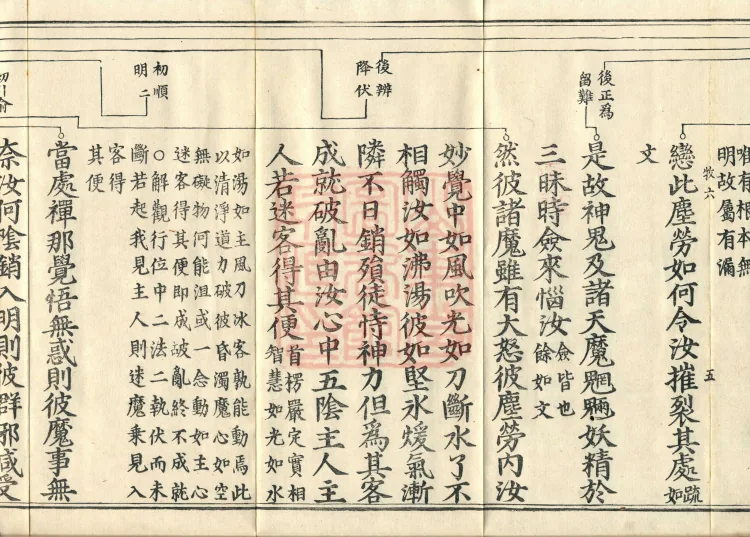 有相本無
明故屬有漏
牧六
五
戀此塵勞如何令汝摧裂其處疏如
文
後正為
留難
是故神鬼及諸天魔魍魎妖精於
三昧時僉來惱汝僉皆也
餘如文
然彼諸魔雖有大怒彼塵勞內汝
後辨
降伏
妙覺中如風吹光如刀斷水了不
相觸汝如沸湯彼如堅氷煖氣漸
隣不日銷殞徒恃神力但為其客
成就破亂由汝心中五陰主人主
人若迷客得其便首楞嚴定實相
智慧如光如水
如湯如主風刀冰客孰能動焉此
以清淨道力破彼昏濁魔心如空
無礙物何能沮或一念動如主心
迷客得其便即成破亂終不成就
○解觀行位中二法二執伏而未
斷若起我見主人則迷魔乘見入
客得
其便
初順
明二
當處禪那覺悟無惑則彼魔事無
奈汝何陰銷入明則彼群邪咸受